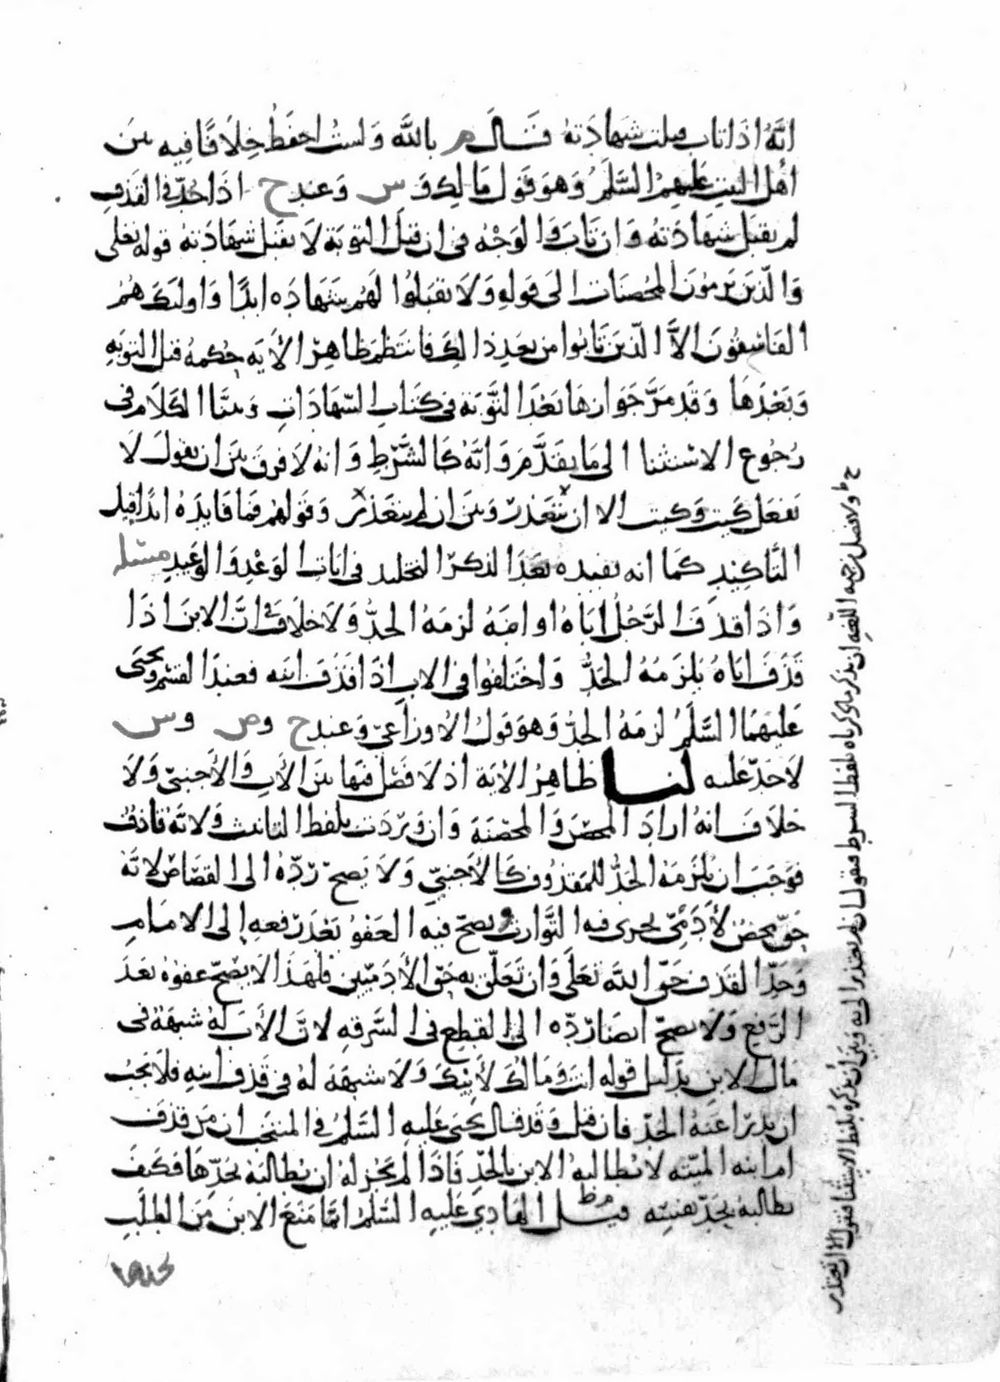 انه اذا تاب قبلت شهادته قال م بالله ولست احفظ خلافا فيه بين
اهل البيت عليهم السلم وهو قول مالك و س وعند ح اذا حد في القذف
لم يقبل شهادته وان تاب والوجه في ان قبل التوبة لا يقبل شهادته قوله تعلى
والذين يرمون المحصنات الى قوله ولا تقبلوا لهم شهاده ابدا واولئك هم
الفاسقون الا الذين تابوا من بعد ذلك فانتظم ظاهر الآيه حكمه قبل التوبه
وبعدها وقد مر جوازها بعد التوبه في كتاب الشهادات وبينا الكلام في
رجوع الاستثنا الى ما يقدم وانه كالشرط وانه لا فرق بين ان يقول لا
تفعل كيت وكيت الا ان تتعذر وبين ان لم تتعذر وقولهم فما فايده ابدا قيل
التاكيد كما انه يفيده بعد الذكر التخليد في ايات الوعد والوعيد مسئله
واذا قذف الرجل اباه او امه لزمه الحد ولا خلاف في ان الابن اذا
قذف اباه يلزمه الحد واختلفوا في الاب اذا قذف ابنه فعند القسم ويحيى
عليهما السلم لزمه الحد وهو قول الاوزاعي وعند ح وص وس
لا حد عليه لنا ظاهر الآية اذ لا فصل فيها بين الاب والاجنبي ولا
خلاف انه اراد المحصن والمحصنة وان وردت بلفظ التانيث ولانه قاذف
فوجب ان يلزمه الحد للمقذوف كالاجنبي ولا يصح رده الى القصاص لانه
حق محض لآدمي يجرى فيه التوارث ويصح فيه العفو بعد رفعه الى الامام
وحد القذف حق الله تعلى وان تعلق به حق الآدميين فلهذا لا يصح عفوه بعد
الرفع ولا يصح ايضا رده الى القطع في السرقه لان الأب له شبهة في
مال الابن بدليل قوله انت ومالك لأبيك ولا شبهة له في قذف ابنه فلا يجب
ان يدرا عنه الحد فان قيل وقد قال يحيى عليه السلم في المنتخب ان من قذف
ام ابنه الميته لا يطالبه الابن بالحد فاذا لم يجز له ان يطالبه بحدها فكيف
يطالبه بحد نفسه قيل الهادي عليه السلم انما منع الابن من الطلب
بحدها